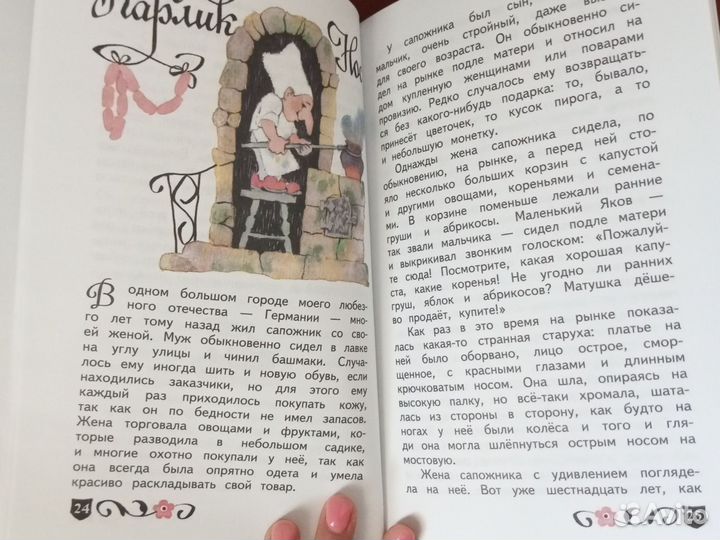 Карлик
Нос
В одном большом городе моего любез-
ного отечества — Германии — мно-
го лет тому назад жил сапожник со сво-
ей женой. Муж обыкновенно сидел в лавке
на углу улицы и чинил башмаки. Случа-
лось ему иногда шить и новую обувь, если
находились заказчики, но для этого ему
каждый раз приходилось покупать кожу,
так как он по бедности не имел запасов.
Жена торговала овощами и фруктами, ко-
торые разводила в небольшом садике,
и многие охотно покупали у неё, так как
она всегда была опрятно одета и умела
красиво раскладывать свой товар.
24
У сапожника был сын,
мальчик, очень стройный, даже
для своего возраста. Он обыкновенно си-
дел на рынке подле матери и относил на
дом купленную женщинами или поварами
провизию. Редко случалось ему возвращать-
ся без какого-нибудь подарка: то, бывало,
принесёт цветочек, то кусок пирога, а то
и небольшую монетку.
Однажды жена сапожника сидела, по
обыкновению, на рынке, а перед ней сто-
яло несколько больших корзин с капустой
и другими овощами, кореньями и семена-
ми. В корзине поменьше лежали ранние
груши и абрикосы. Маленький Яков —
так звали мальчика — сидел подле матери
и выкрикивал звонким голоском: «Пожалуй-
те сюда! Посмотрите, какая хорошая капу-
ста, какие коренья! Не угодно ли ранних
груш, яблок и абрикосов? Матушка дёше-
во продаёт, купите!»
Как раз в это время на рынке показа-
лась какая-то странная старуха: платье на
ней было оборвано, лицо острое, смор-
щенное, с красными глазами и длинным
крючковатым носом. Она шла, опираясь на
высокую палку, но всё-таки хромала, шата-
лась из стороны в сторону, как будто на
ногах у неё были колёса и того и гля-
ди она могла шлёпнуться острым носом на
мостовую.
Жена сапожника с удивлением погляде-
ла на неё. Вот уже шестнадцать лет, как
25
Avito